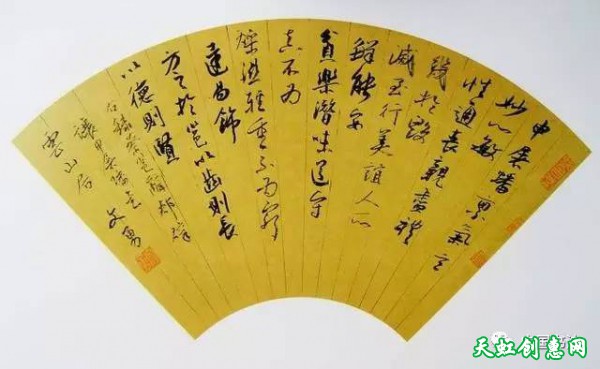 申屠蟠稟氣玄
妙心敏
性通喪親盡禮
幾於毀
滅至行美誼人所
鮮能安
貧樂潛味道守
真不為
燥濕輕重不為窮
達易節
方之於邕以齒則長
以德則賢
右錄蔡邕
雲山居
文勇
天虹创意网